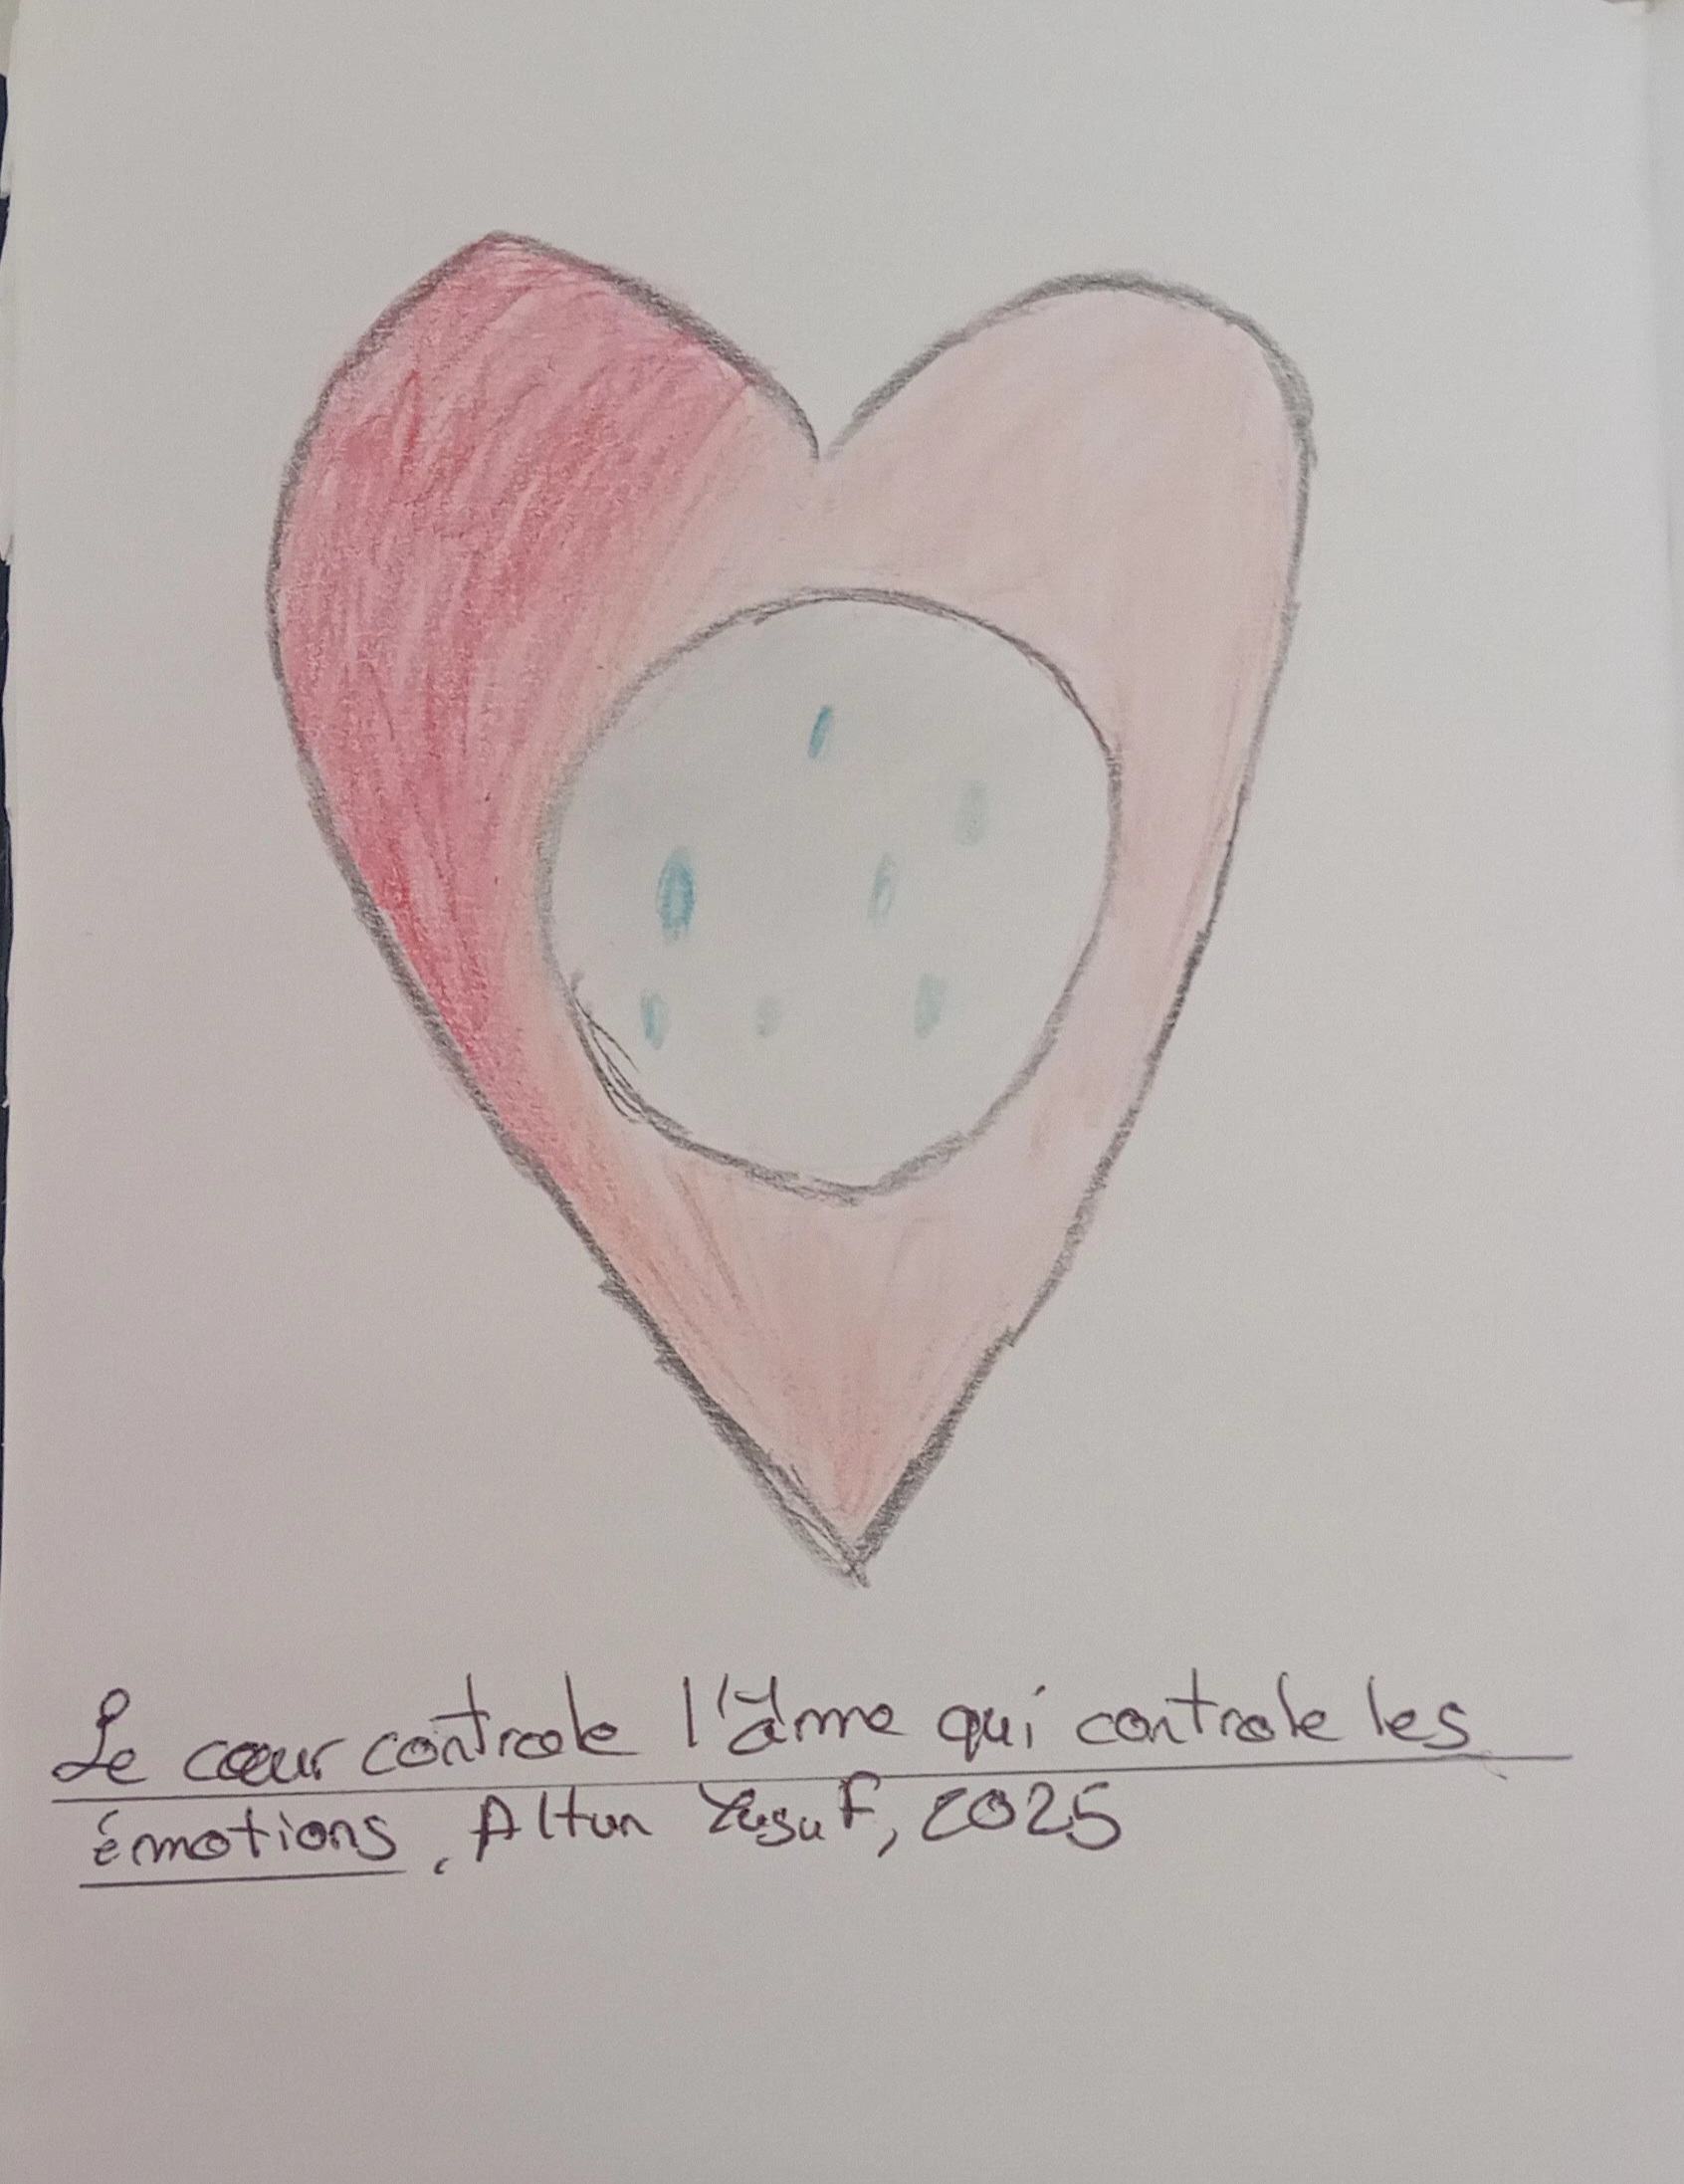 Le cœur controle l'âme qui controle les
émotions, Altun Yusuf, 2025